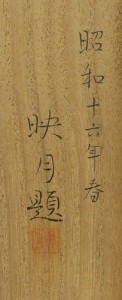 昭和十六年春
映月題